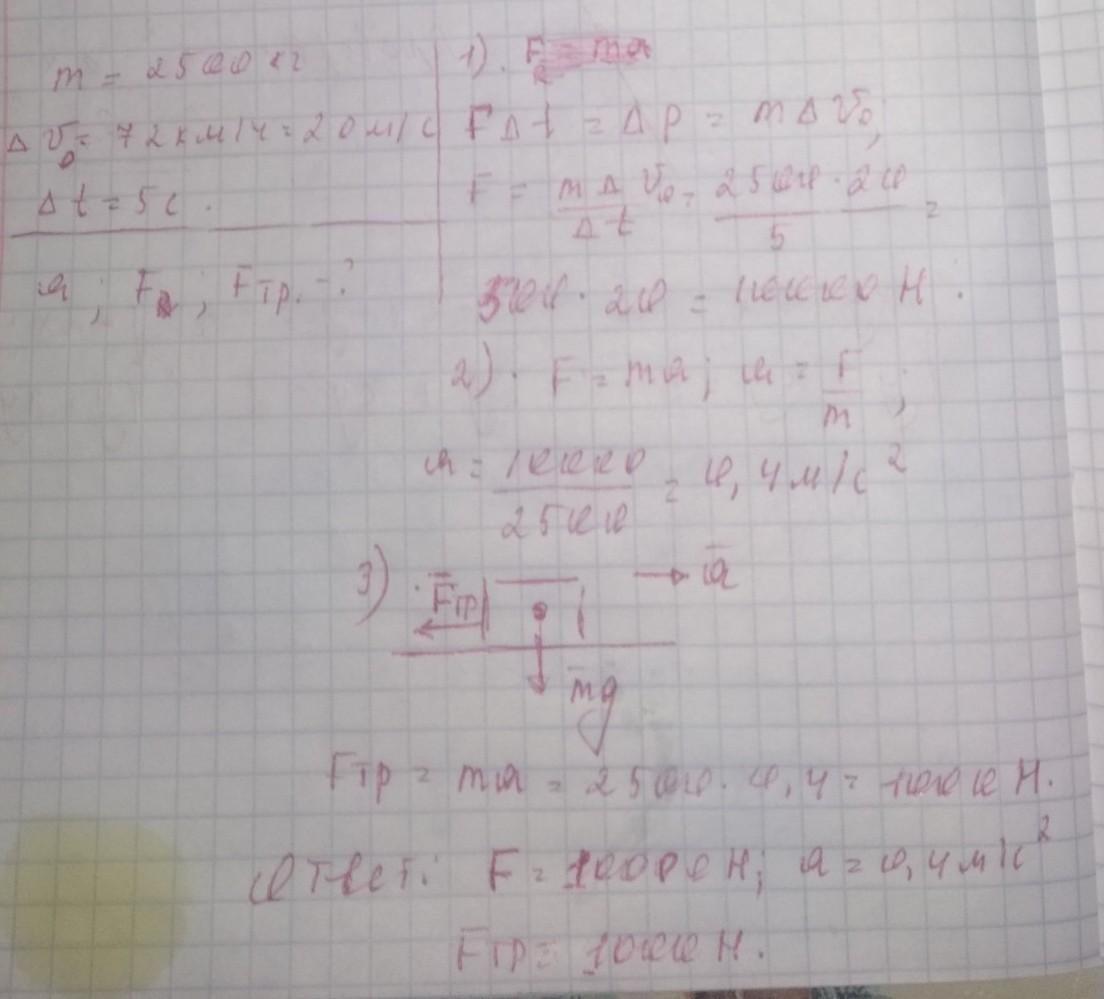 m = 2500 кг
Δ v₀ = 72 км/ч = 20 м/с
Δ t = 5 с.
a ; F ; Fтр. - ?
1). F = ma
F Δ t = Δ p = m Δ v₀;
F = m Δ v₀ / Δ t = 2500 · 20 / 5 =
500 · 20 = 10000 Н.
2). F = ma; a = F / m ;
a = 10000 / 2500 = 0,4 м/с²
3). Fтр a
mg
Fтр = ma = 2500 · 0,4 = 1000 Н.
Ответ: F = 10000 Н; a = 0,4 м/с²
Fтр = 1000 Н.